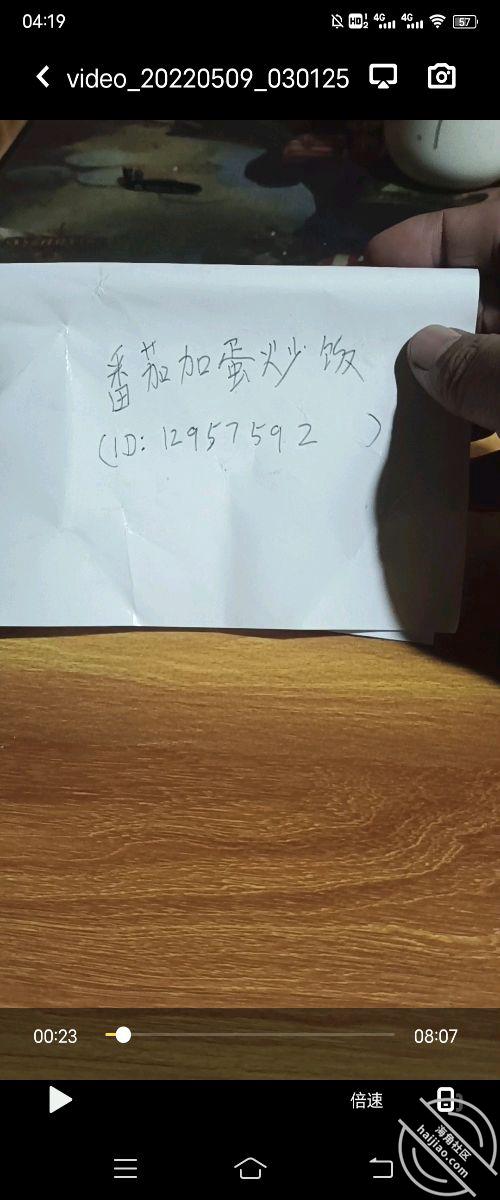 04:19
HD 1 2 4G 4G 57
video_20220509_030125
番茄加蛋炒饭
(ID: 12957592 )
00:23
08:07
倍速
海角社区
haijiao.com